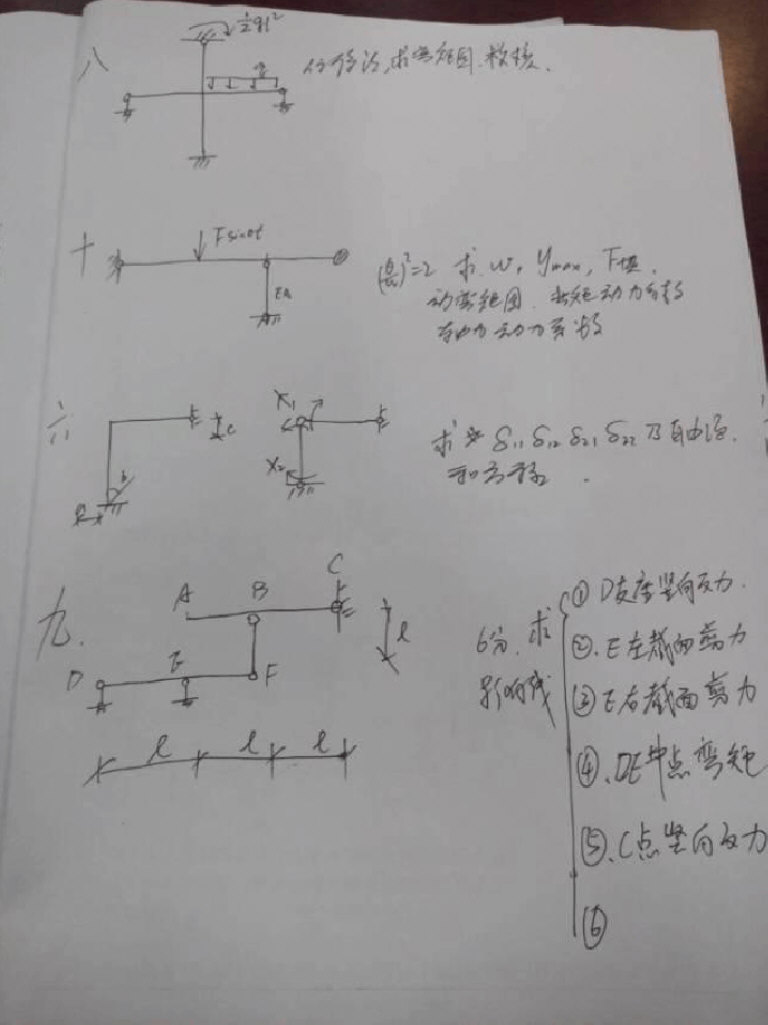 八
½ql²
q
位移法,求弯矩图.校核.
十
Fsinθt
EA
(θ/ω)²=2 求 ω, ymax, F
动弯矩图. 弯矩动力系数
动力系数
六
c
b
a
X₁
X₂
求 δ₁₁ δ₁₂ δ₂₁ δ₂₂ 及自由项.
和方程.
九.
A B C
D E F
l
l l l
6分. 求
影响线
① D支座竖向反力.
②. E左截面剪力
③ E右截面剪力
④. DE中点弯矩
⑤. C点竖向反力
⑥